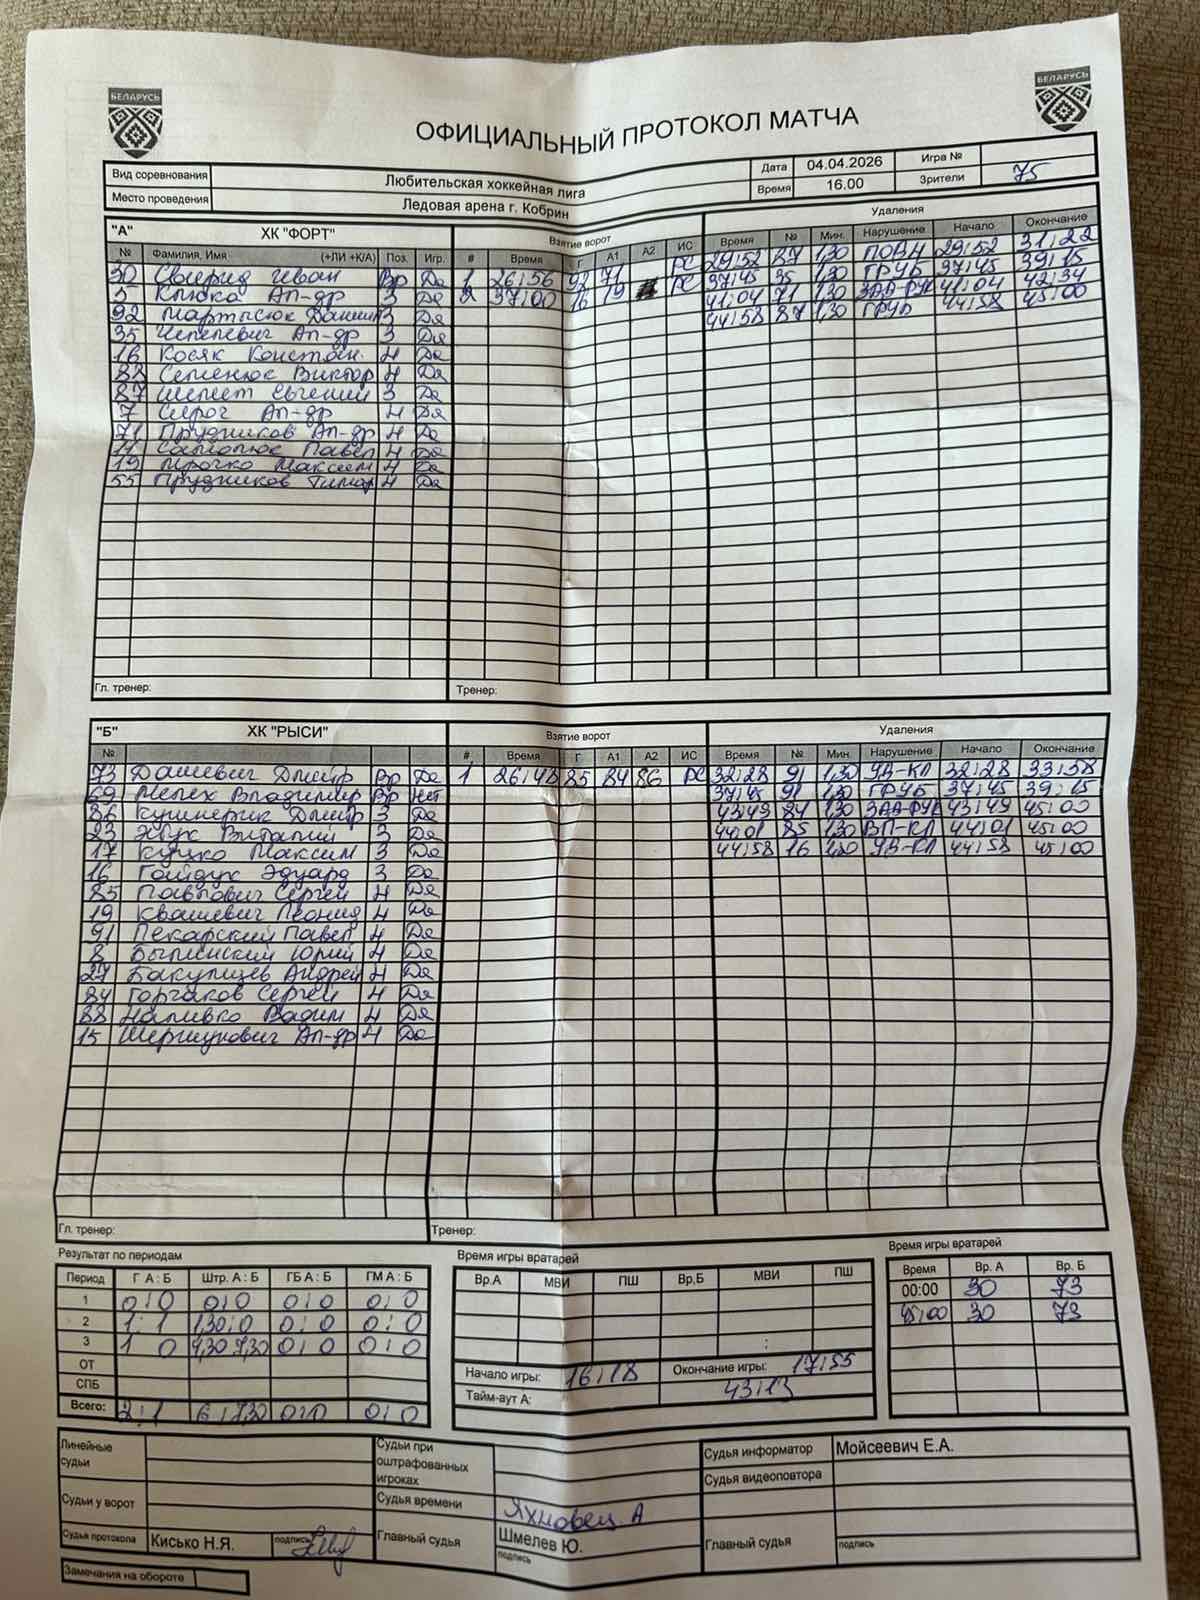 БЕЛАРУСЬ
БЕЛАРУСЬ
ОФИЦИАЛЬНЫЙ ПРОТОКОЛ МАТЧА
Вид соревнования Любительская хоккейная лига Дата 04.04.2026 Игра №
Место проведения Ледовая арена г. Кобрин Время 16.00 Зрители 75
"А" ХК "ФОРТ" Взятие ворот Удаления
№ Фамилия, Имя (+ЛИ +К/А) Поз. Игр. # Время Г А1 А2 ИС Время № Мин. Нарушение Начало Окончание
30 Свирид Иван Вр Да 1 26:56 92 71 РС 29:52 87 1,30 29:52 31:22
5 Клюка Ал-др З Да 2 37:00 16 19 РС 37:45 35 1,30 ГРУБ 37:45 39:15
92 Мартысюк З Да 41:04 71 1,30 ЗАД-РУК 41:04 42:34
35 Чепелевич Ал-др З Да 44:58 87 1,30 ГРУБ 44:58 45:00
16 Косяк Констан. Н Да
82 Семенюк Виктор Н Да
87 Шепет Евгений З Да
7 Сирог Ал-др Н Да
71 Прудников Ал-др Н Да
11 Самолюк Павел Н Да
19 Мрочко Максим Н Да
55 Прудников Тимор Н Да
Гл. тренер: Тренер:
"Б" ХК "РЫСИ" Взятие ворот Удаления
№ # Время Г А1 А2 ИС Время № Мин. Нарушение Начало Окончание
73 Дашевич Дмитр Вр Да 1 26:48 85 84 86 РС 32:28 91 1,30 УД-КЛ 32:28 33:58
69 Мелех Владимир Вр Нет 37:45 91 1,30 ГРУБ 37:45 39:15
86 Кушнерик Дмитр З Да 43:49 84 1,30 ЗАД-РУК 43:49 45:00
23 Жвук Виталий З Да 44:01 85 1,30 ВП-КЛ 44:01 45:00
17 Куцко Максим З Да 44:58 16 1,30 УД-КЛ 44:58 45:00
16 Гайдук Эдуард З Да
85 Павлович Сергей Н Да
19 Квашевич Леонид Н Да
91 Пекарский Павел Н Да
8 Былинский Юрий Н Да
27 Бакулицев Андрей Н Да
84 Горчаков Сергей Н Да
88 Наливко Вадим Н Да
15 Шершунович Ал-др Н Да
Гл. тренер: Тренер:
Результат по периодам Время игры вратарей Время игры вратарей
Период Г А : Б Штр. А : Б ГБ А : Б ГМ А : Б Вр.А МВИ ПШ Вр,Б МВИ ПШ Время Вр. А Вр. Б
1 0:0 0:0 0:0 0:0 00:00 30 73
2 1:1 1,30:0 0:0 0:0 45:00 30 73
3 1 0 4,30 7,30 0:0 0:0
ОТ Начало игры: 16:18 Окончание игры: 17:55
СПБ Тайм-аут А: 43:13
Всего: 2:1 6:7,30 0:0 0:0
Линейные судьи Судьи при оштрафованных игроках Судья информатор Мойсеевич Е.А.
Судья видеоповтора
Судьи у ворот Судья времени Яхновец А
Судья протокола Кисько Н.Я. подпись Главный судья Шмелев Ю. подпись Главный судья подпись
Замечания на обороте